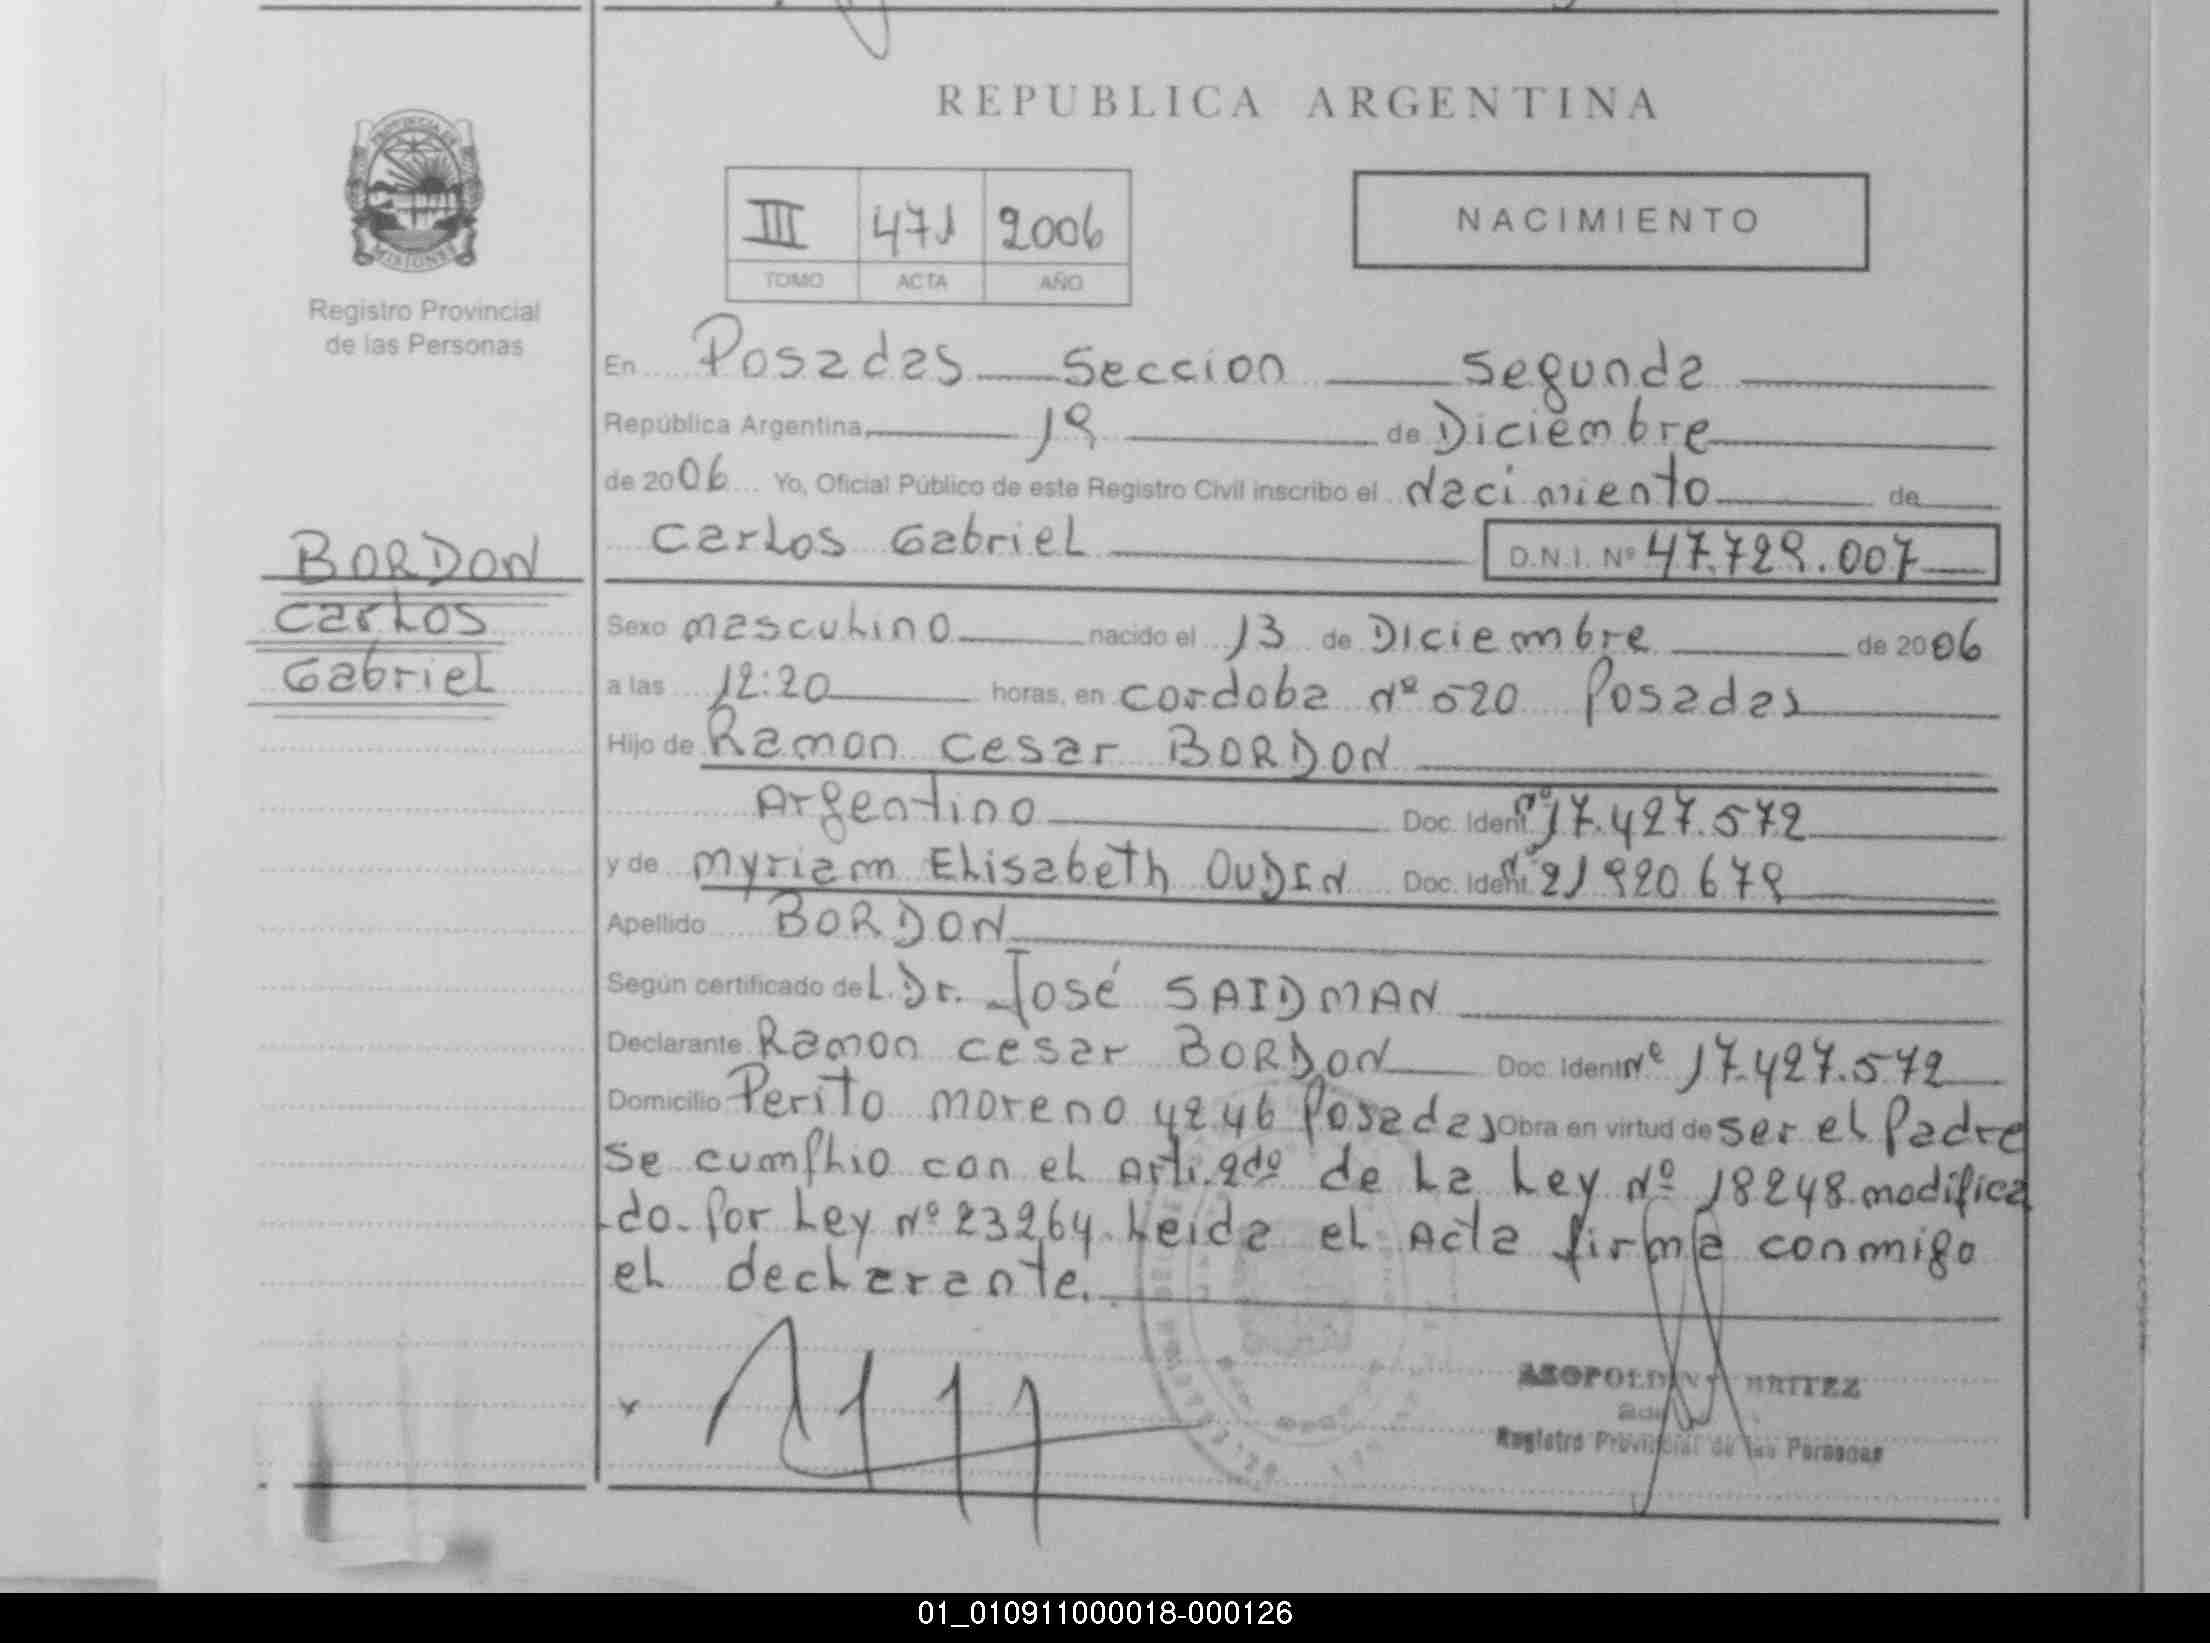 REPUBLICA ARGENTINA
PROVINCIA DE
MISIONES
Registro Provincial
de las Personas
III 471 2006
TOMO ACTA AÑO
NACIMIENTO
En Posadas Seccion Segunda
República Argentina, 19 de Diciembre
de 2006 Yo, Oficial Público de este Registro Civil inscribo el Nacimiento de
Carlos Gabriel D.N.I. Nº 47.729.007
BORDON
Carlos
Gabriel
Sexo masculino nacido el 13 de Diciembre de 2006
a las 12:20 horas, en Cordoba Nº 520 Posadas
Hijo de Ramon Cesar BORDON
Argentino Doc. Ident. Nº 17.427.572
y de Myriam Elisabeth OUDIN Doc. Ident. Nº 21 920 679
Apellido BORDON
Según certificado del Dr. José SAIDMAN
Declarante Ramon Cesar BORDON Doc. Ident Nº 17.427.572
Domicilio Perito Moreno 4246 Posadas Obra en virtud de ser el Padre
Se cumplio con el Arti. 2do de La Ley Nº 18248 modifica
do por Ley Nº 23264. Leida el Acta firma conmigo
el declarante.
BRITEZ
Registro Provincial de las Personas
01_010911000018-000126